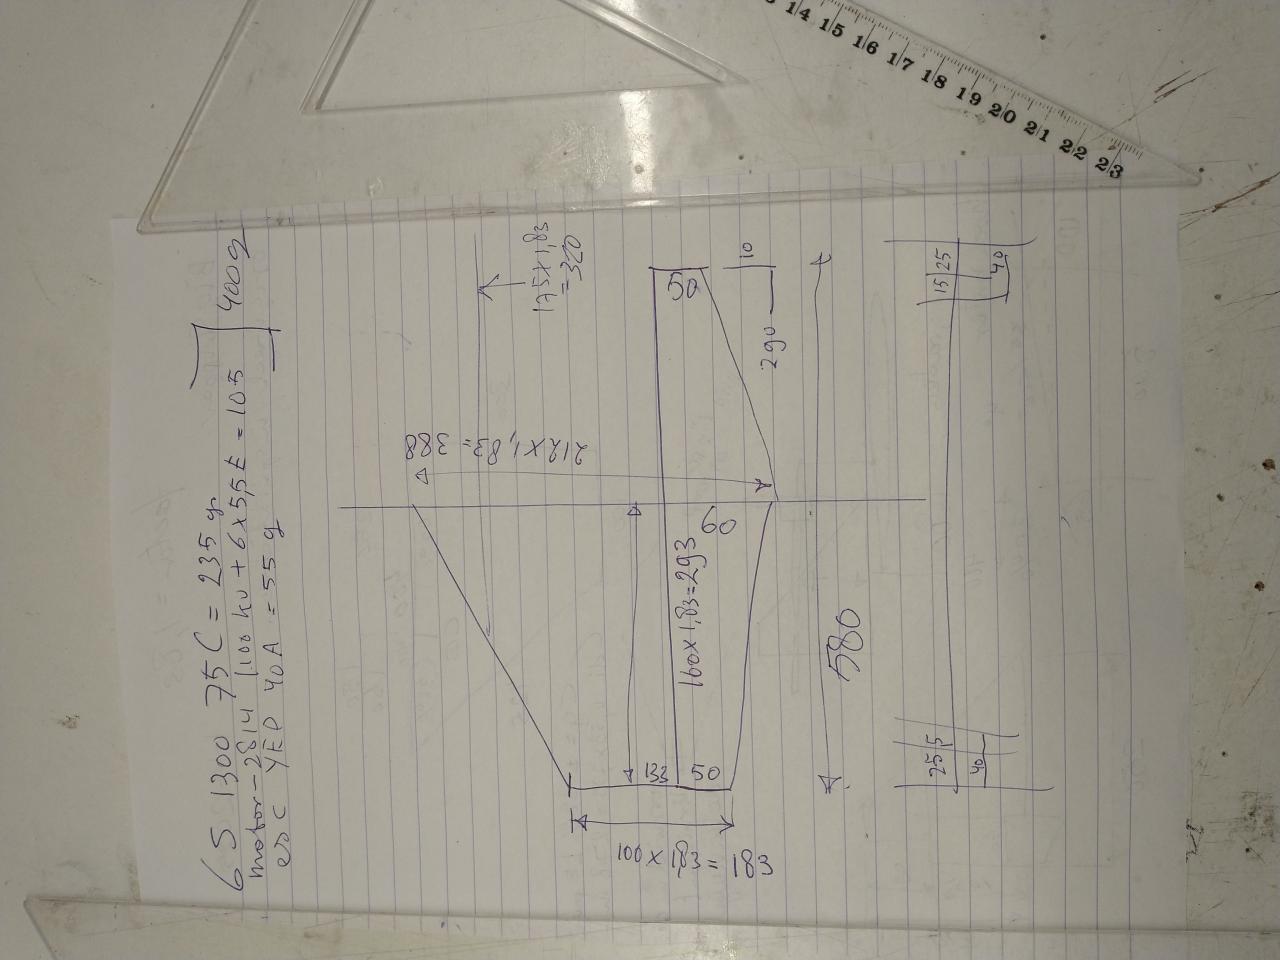 6S 1300 75C = 235 g
motor-2814 1100 kv + 6x5,5E = 105
esc YEP 40A = 55 g
400g
175 x 1,83
= 320
212 x 1,83 = 388
50
10
290
60
160 x 1,83 = 293
133
50
580
100 x 1,83 = 183
15
25
40
25
5
40
13 14 15 16 17 18 19 20 21 22 23